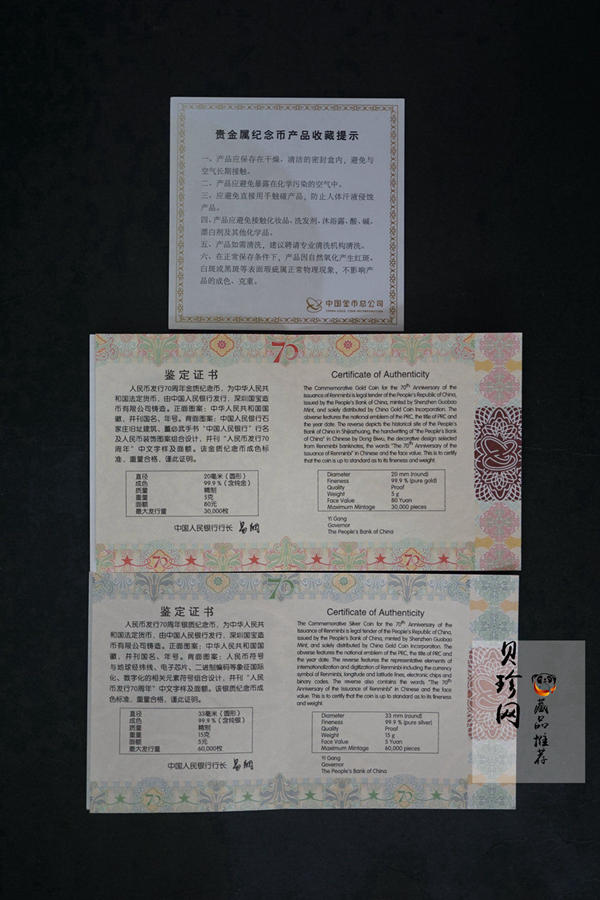 贵金属纪念币产品收藏提示
一、产品应保存在干燥、清洁的密封盒内，避免与
空气长期接触。
二、产品应避免暴露在化学污染的空气中。
三、应避免直接用手触碰产品，防止人体汗液侵蚀
产品。
四、产品应避免接触化妆品、洗发剂、沐浴露、酸、碱、
漂白剂及其他化学品。
五、产品如需清洗，建议聘请专业清洗机构清洗。
六、在正常保存条件下，产品因自然氧化产生红斑、
白斑或黑斑等表面瑕疵属正常物理现象，不影响产
品的成色、克重。
中国金币总公司
CHINA GOLD COIN INCORPORATION
70
鉴定证书
人民币发行70周年金质纪念币，为中华人民共
和国法定货币，由中国人民银行发行，深圳国宝造
币有限公司铸造。正面图案：中华人民共和国国
徽，并刊国名、年号。背面图案：中国人民银行石
家庄旧址建筑，董必武手书“中国人民银行”行名
及人民币装饰图案组合设计，并刊“人民币发行70
周年”中文字样及面额。该金质纪念币成色标
准、重量合格，谨此证明。
直径 20毫米（圆形）
成色 99.9%（含纯金）
质量 精制
重量 5克
面额 80元
最大发行量 30,000枚
中国人民银行行长 易纲
Certificate of Authenticity
The Commemorative Gold Coin for the 70th Anniversary of the
Issuance of Renminbi is legal tender of the People's Republic of China,
issued by the People's Bank of China, minted by Shenzhen Guobao
Mint, and solely distributed by China Gold Coin Incorporation. The
obverse features the national emblem of the PRC, the title of PRC and
the year date. The reverse depicts the historical site of the People's
Bank of China in Shijiazhuang, the handwriting of "the People's Bank
of China" in Chinese by Dong Biwu, the decorative design selected
from Renminbi banknotes, the words "The 70th Anniversary of the
Issuance of Renminbi" in Chinese and the face value. This is to certify
that the coin is up to standard as to its fineness and weight.
Diameter 20 mm (round)
Fineness 99.9 % (pure gold)
Quality Proof
Weight 5 g
Face Value 80 Yuan
Maximum Mintage 30,000 pieces
Yi Gang
Governor
The People's Bank of China
70
70
70
鉴定证书
人民币发行70周年银质纪念币，为中华人民共
和国法定货币，由中国人民银行发行，深圳国宝造
币有限公司铸造。正面图案：中华人民共和国国
徽，并刊国名、年号。背面图案：人民币符号
与地球经纬线、电子芯片、二进制编码等象征国际
化、数字化的相关元素符号组合设计，并刊“人民
币发行70周年”中文字样及面额。该银质纪念币成
色标准、重量合格，谨此证明。
直径 33毫米（圆形）
成色 99.9%（含纯银）
质量 精制
重量 15克
面额 5元
最大发行量 60,000枚
中国人民银行行长 易纲
Certificate of Authenticity
The Commemorative Silver Coin for the 70th Anniversary of the
Issuance of Renminbi is legal tender of the People's Republic of China,
issued by the People's Bank of China, minted by Shenzhen Guobao
Mint, and solely distributed by China Gold Coin Incorporation. The
obverse features the national emblem of the PRC, the title of PRC and
the year date. The reverse features the representative elements of
internationalization and digitization of Renminbi including the currency
symbol of Renminbi, longitude and latitude lines, electronic chips and
binary codes. The reverse also contains the words "The 70th
Anniversary of the Issuance of Renminbi" in Chinese and the face
value. This is to certify that the coin is up to standard as to its fineness
and weight.
Diameter 33 mm (round)
Fineness 99.9 % (pure silver)
Quality Proof
Weight 15 g
Face Value 5 Yuan
Maximum Mintage 60,000 pieces
Yi Gang
Governor
The People's Bank of China
70
70
贝珍网
藏品推荐